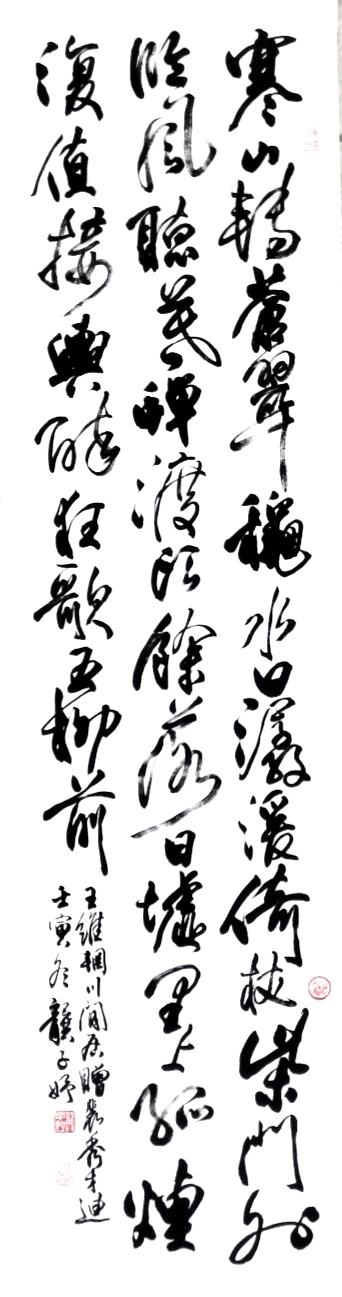 寒山轉蒼翠龝水日潺湲倚杖柴門外
臨風聽莫蟬渡頭餘落日墟里上孤煙
復值接輿醉狂歌五柳前
王維輞川閒居贈裴秀才迪
壬寅冬龔子妤